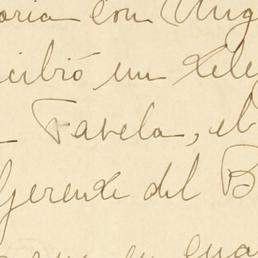 oria con Ung
cibió un tele
Favela, el
Gerente del B